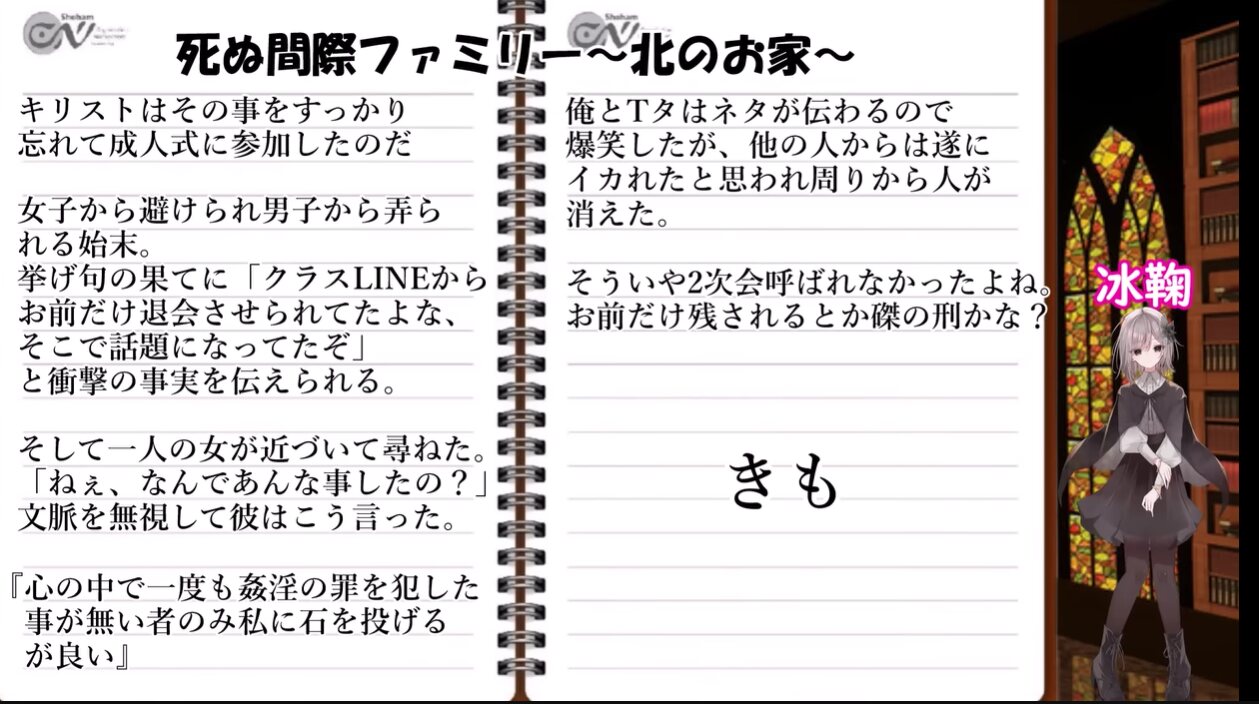 Shoham
Shoham
死ぬ間際ファミリー～北のお家～
キリストはその事をすっかり
忘れて成人式に参加したのだ
女子から避けられ男子から弄ら
れる始末。
挙げ句の果てに「クラスLINEから
お前だけ退会させられてたよな、
そこで話題になってたぞ」
と衝撃の事実を伝えられる。
そして一人の女が近づいて尋ねた。
「ねぇ、なんであんな事したの？」
文脈を無視して彼はこう言った。
『心の中で一度も姦淫の罪を犯した
事が無い者のみ私に石を投げる
が良い』
俺とTタはネタが伝わるので
爆笑したが、他の人からは遂に
イカれたと思われ周りから人が
消えた。
そういや2次会呼ばれなかったよね。
お前だけ残されるとか磔の刑かな？
きも
氷鞠